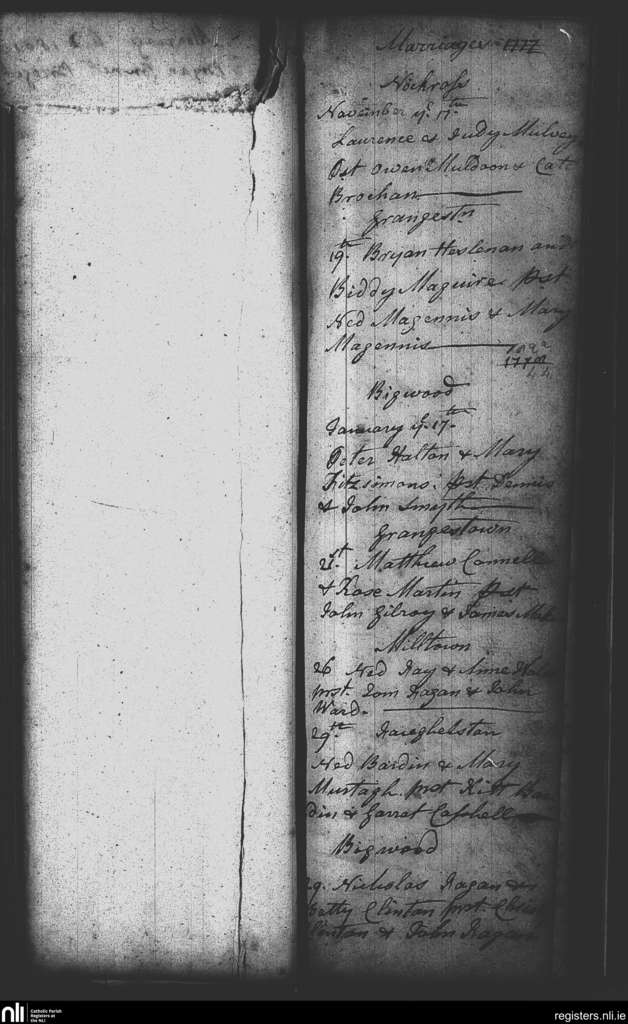 Marriages 1777
Nockross
November ye. 17th
Laurence & Judy Mulvey
Pst Owen Muldoon & Cat
Brochan
Grangestn
19th. Bryan Heslenan and
Biddy Maguire pst
Ned Magennis & Mary
Magennis
1778
Bigwood
January ye. 17th
Peter Halton & Mary
Fitzsimons. pst Dennis
& John Smyth
Grangestown
21st. Matthew Connell
& Rose Martin pst
John Gilroy & James
Milltown
26 Ned Ray & Anne
prst. Tom Ragan & John
Ward.
29th
Ned Bardin & Mary
Murtagh prst Kitt Bar
din & Garrat Cashell
Bigwood
29. Nicholas Ragan &
Betty Clinton prst.
Clinton & John Ragan
nli Catholic Parish
Registers at
the NLI
registers.nli.ie